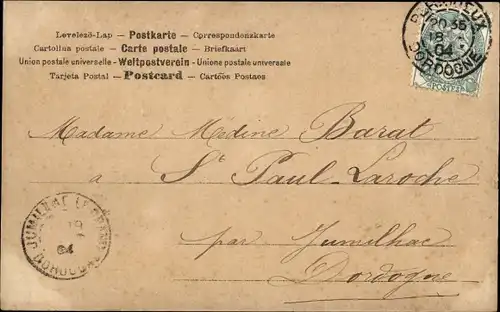 Levelező-Lap — Postkarte — Correspondenzkarte
Cartolina postale — Carte postale — Briefkaart
Union postale universelle — Weltpostverein — Unione postale universale
Tarjeta Postal — Postcard — Cartões Postaes
PÉRIGUEUX
20 35
18
04
DORDOGNE
POSTES
Madame Médine Barat
a St Paul-Laroche
par Jumilhac
Dordogne
JUMILHAC LE GRAND
19
04
DORDOGNE